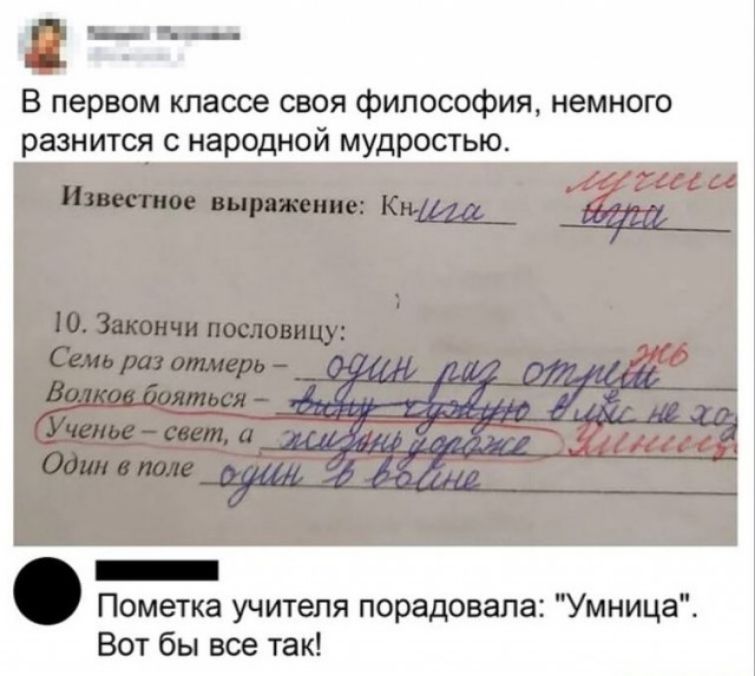 В первом классе своя философия, немного
разнится с народной мудростью.
лучши
Известное выражение: Книга игра
10. Закончи пословицу:
Семь раз отмерь – один раз отреж жь
Волков бояться – вину чужую в лес не ход
Ученье – свет, а жизнь дороже Умница
Один в поле один в войне
Пометка учителя порадовала: "Умница".
Вот бы все так!